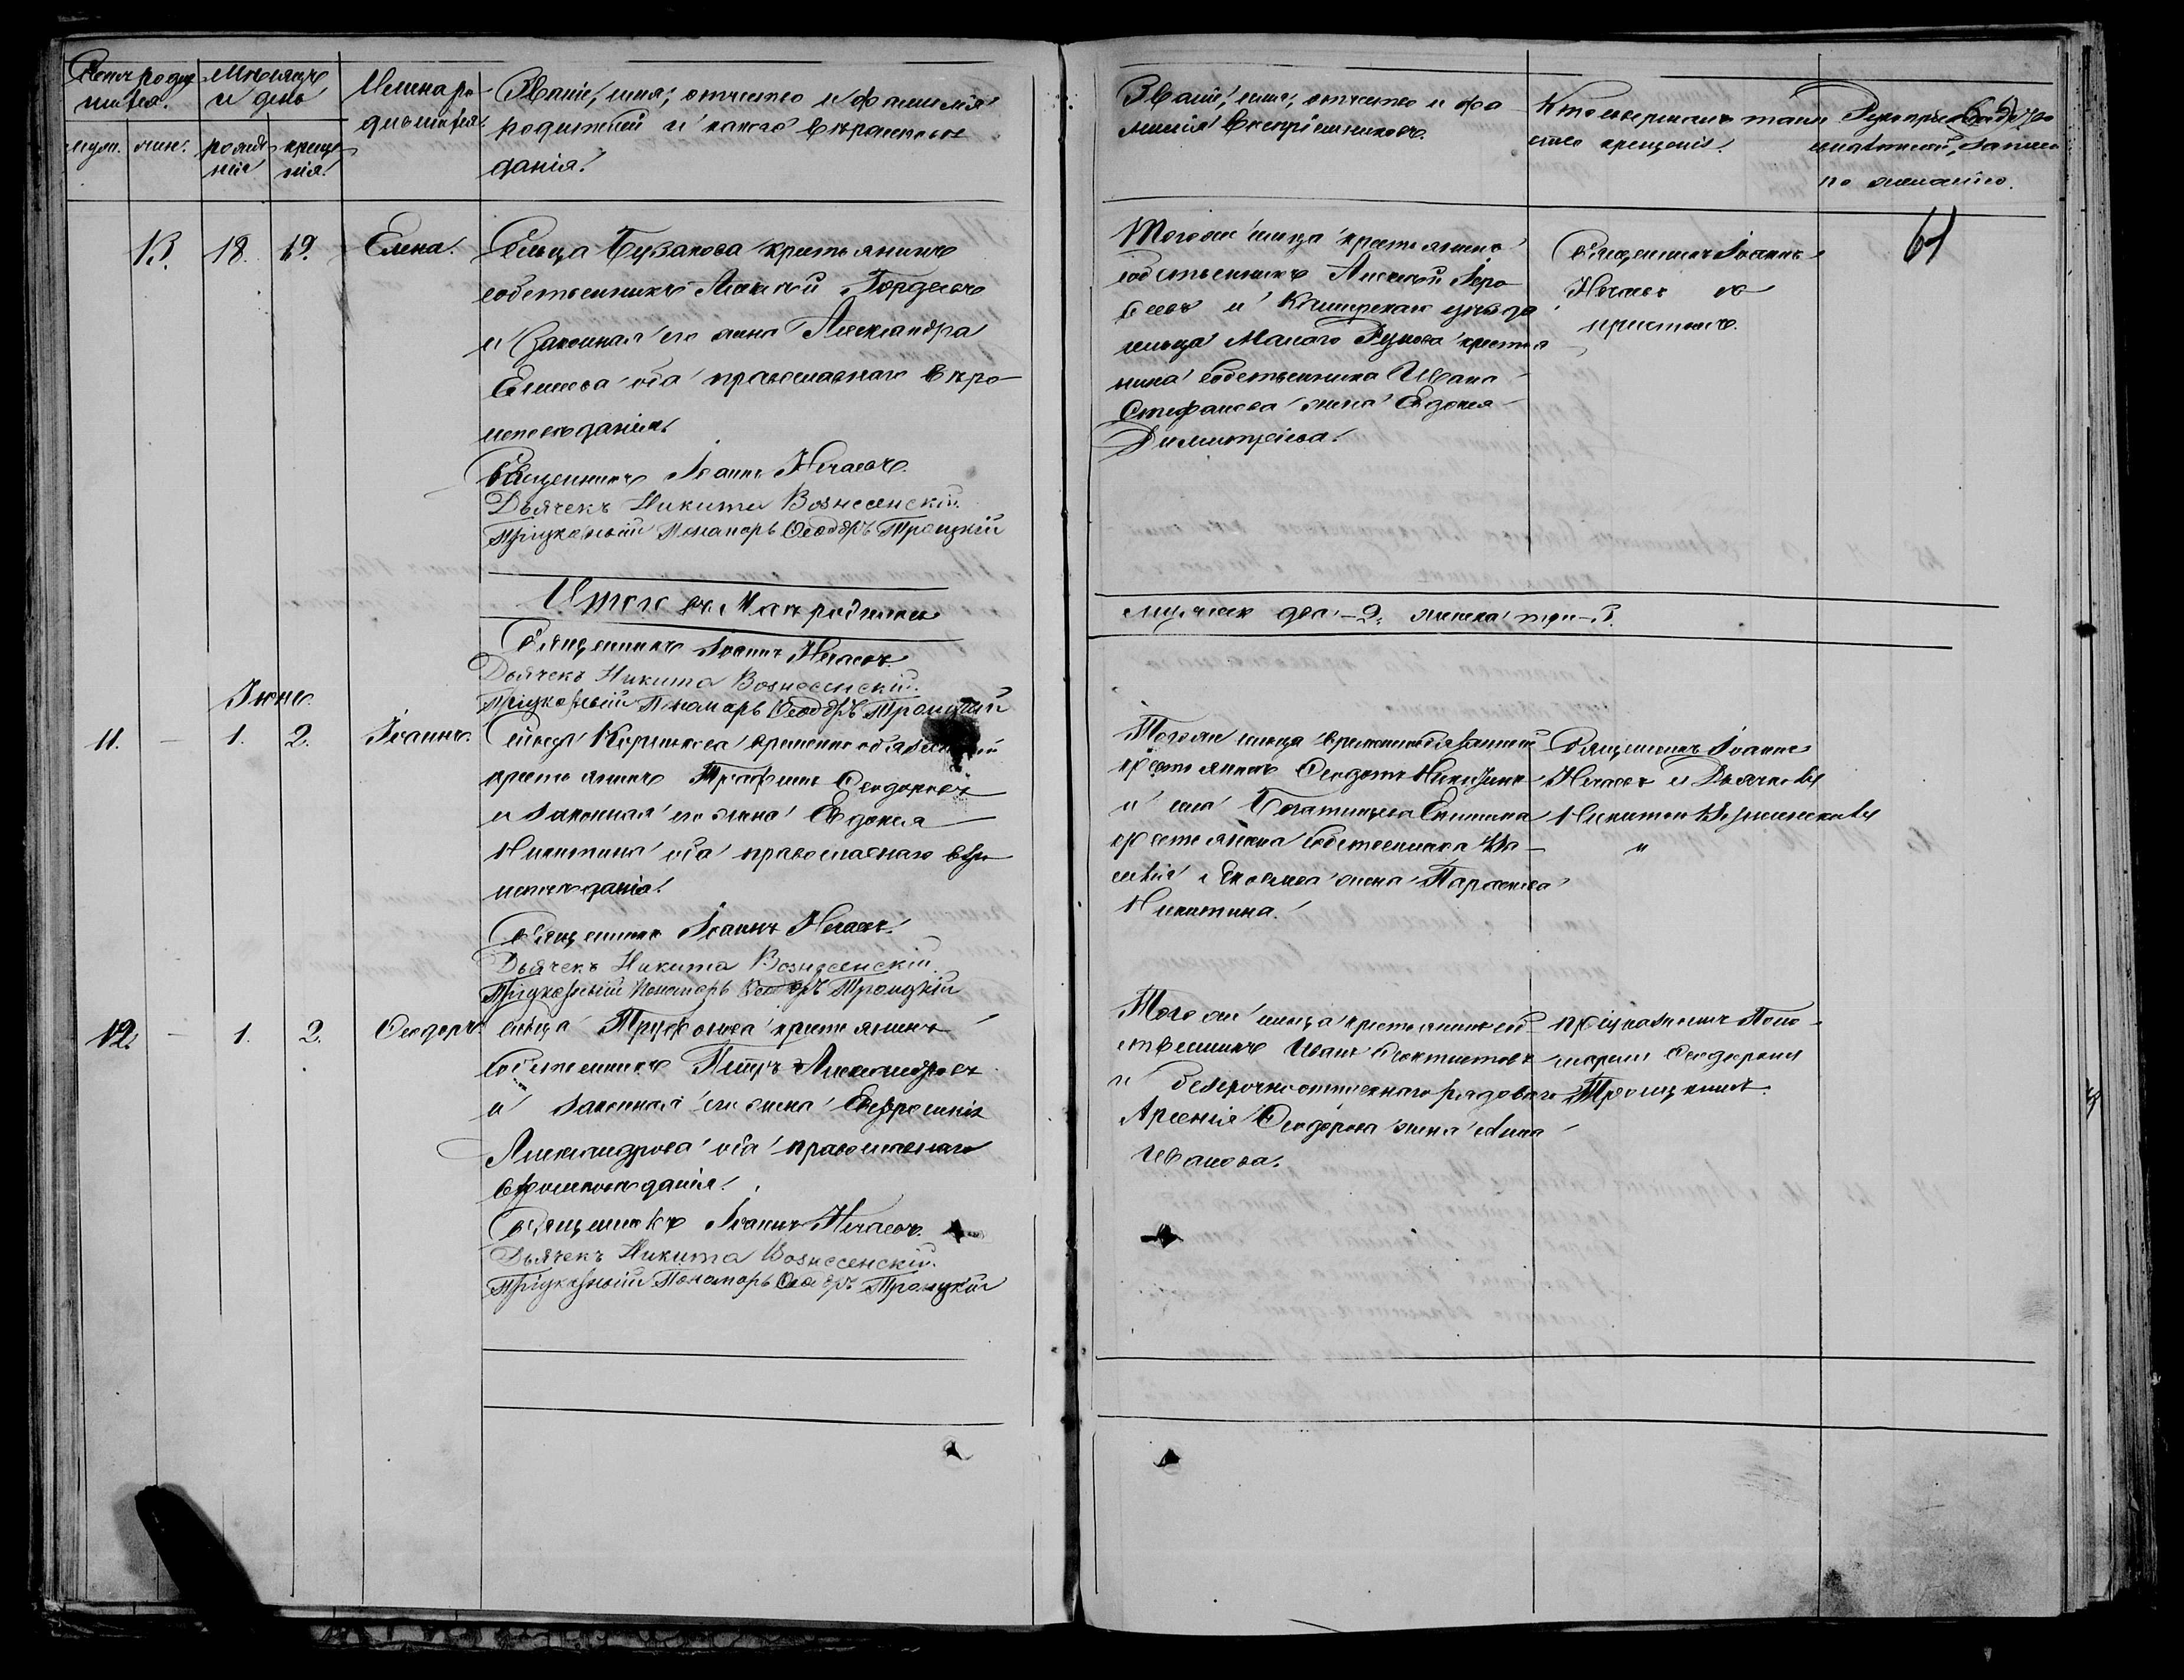 Счетъ родив
шихся.
муж. жен.
Мѣсяцъ
и день
рожде
нія
креще
нія.
Имена ро
дившихся.
Званіе, имя, отчество и фамилія
родителей и какого вѣроисповѣ
данія.
Званіе, имя, отчество и фа
милія воспріемниковъ.
Кто совершалъ таин
ство крещенія.
Рукоприкладство
свидѣтелей записи
по желанію.
13. 18. 19. Елена.
Сельца Бузакова крестьянинъ
собственникъ Алексѣй Гордѣевъ
и законная его жена Александра
оба православнаго вѣро
исповѣданія.
Священникъ Іоаннъ Нечаевъ.
Дьячекъ Никита Вознесенскій.
Причетный Пономарь Ѳеодоръ Троицкій
Того же сельца крестьянинъ
собственникъ Алексѣй
и Каширскаго уѣзда
сельца Малаго Рунова крестья
нина собственника Ивана
Стефанова жена Евдокія
Димитріева.
Священникъ Іоаннъ
Нечаевъ съ
причтомъ.
61
Итого въ Маѣ родилось
мужеска два - 2. женска три - 3.
Священникъ Іоаннъ Нечаевъ.
Дьячекъ Никита Вознесенскій.
Пономарь Ѳеодоръ Троицкій
Іюнь.
11. - 1. 2. Іоаннъ.
Сельца временно обязанный
крестьянинъ Трофимъ Ѳеодоровъ
и законная его жена Евдокія
Никитина оба православнаго вѣро
исповѣданія.
Священникъ Іоаннъ Нечаевъ.
Дьячекъ Никита Вознесенскій.
Пономарь Ѳеодоръ Троицкій
Того же сельца временнообязанный
крестьянинъ Ѳеодотъ Никитинъ
и села Богатищева
крестьянина собственника Ва
силія Яковлева жена Параскева
Никитина.
Священникъ Іоаннъ
Нечаевъ и Дьячковъ
Никитой Вознесенскимъ
12. - 1. 2. Ѳеодоръ
сельца Труфонова крестьянинъ
собственникъ Петръ Александровъ
и законная его жена Евфросинія
Александрова оба православнаго
вѣроисповѣданія.
Священникъ Іоаннъ Нечаевъ.
Дьячекъ Никита Вознесенскій.
Пономарь Ѳеодоръ Троицкій
Того же сельца крестьянинъ соб
ственникъ Иванъ Ѳеоктистовъ
и безсрочноотпускнаго рядоваго
Арсенія Ѳеодорова жена Анна
Иванова.
Поно
маремъ Ѳеодоромъ
Троицкимъ.